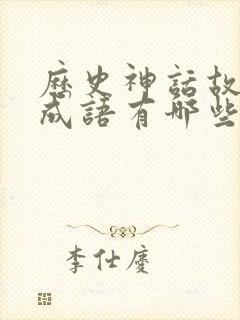 歷史神話故
成語有哪些
李仕慶